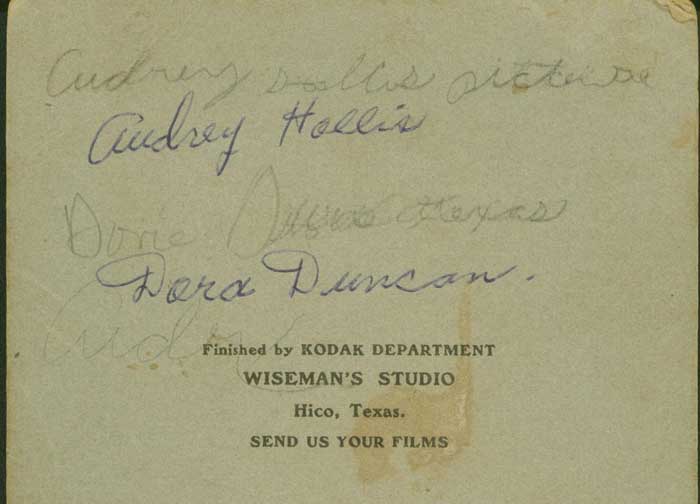 Audrey Hollis picture
Audrey Hollis
Dorie texas
Dora Duncan.
Audre
Finished by KODAK DEPARTMENT
WISEMAN'S STUDIO
Hico, Texas.
SEND US YOUR FILMS